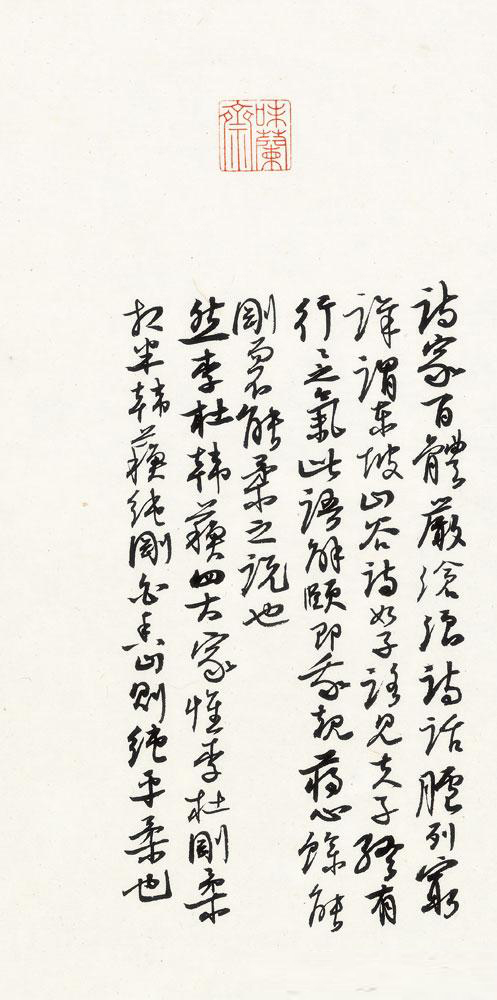 味蘭齋
詩家百體嚴滄浪詩話臚列最
詳謂東坡山谷詩如子路見夫子終有
行行之氣此語解頤即我規蔣心餘能
剛而不能柔之說也
然李杜韓蘇四大家惟李杜剛柔
參半韓蘇純剛白香山則純乎柔也